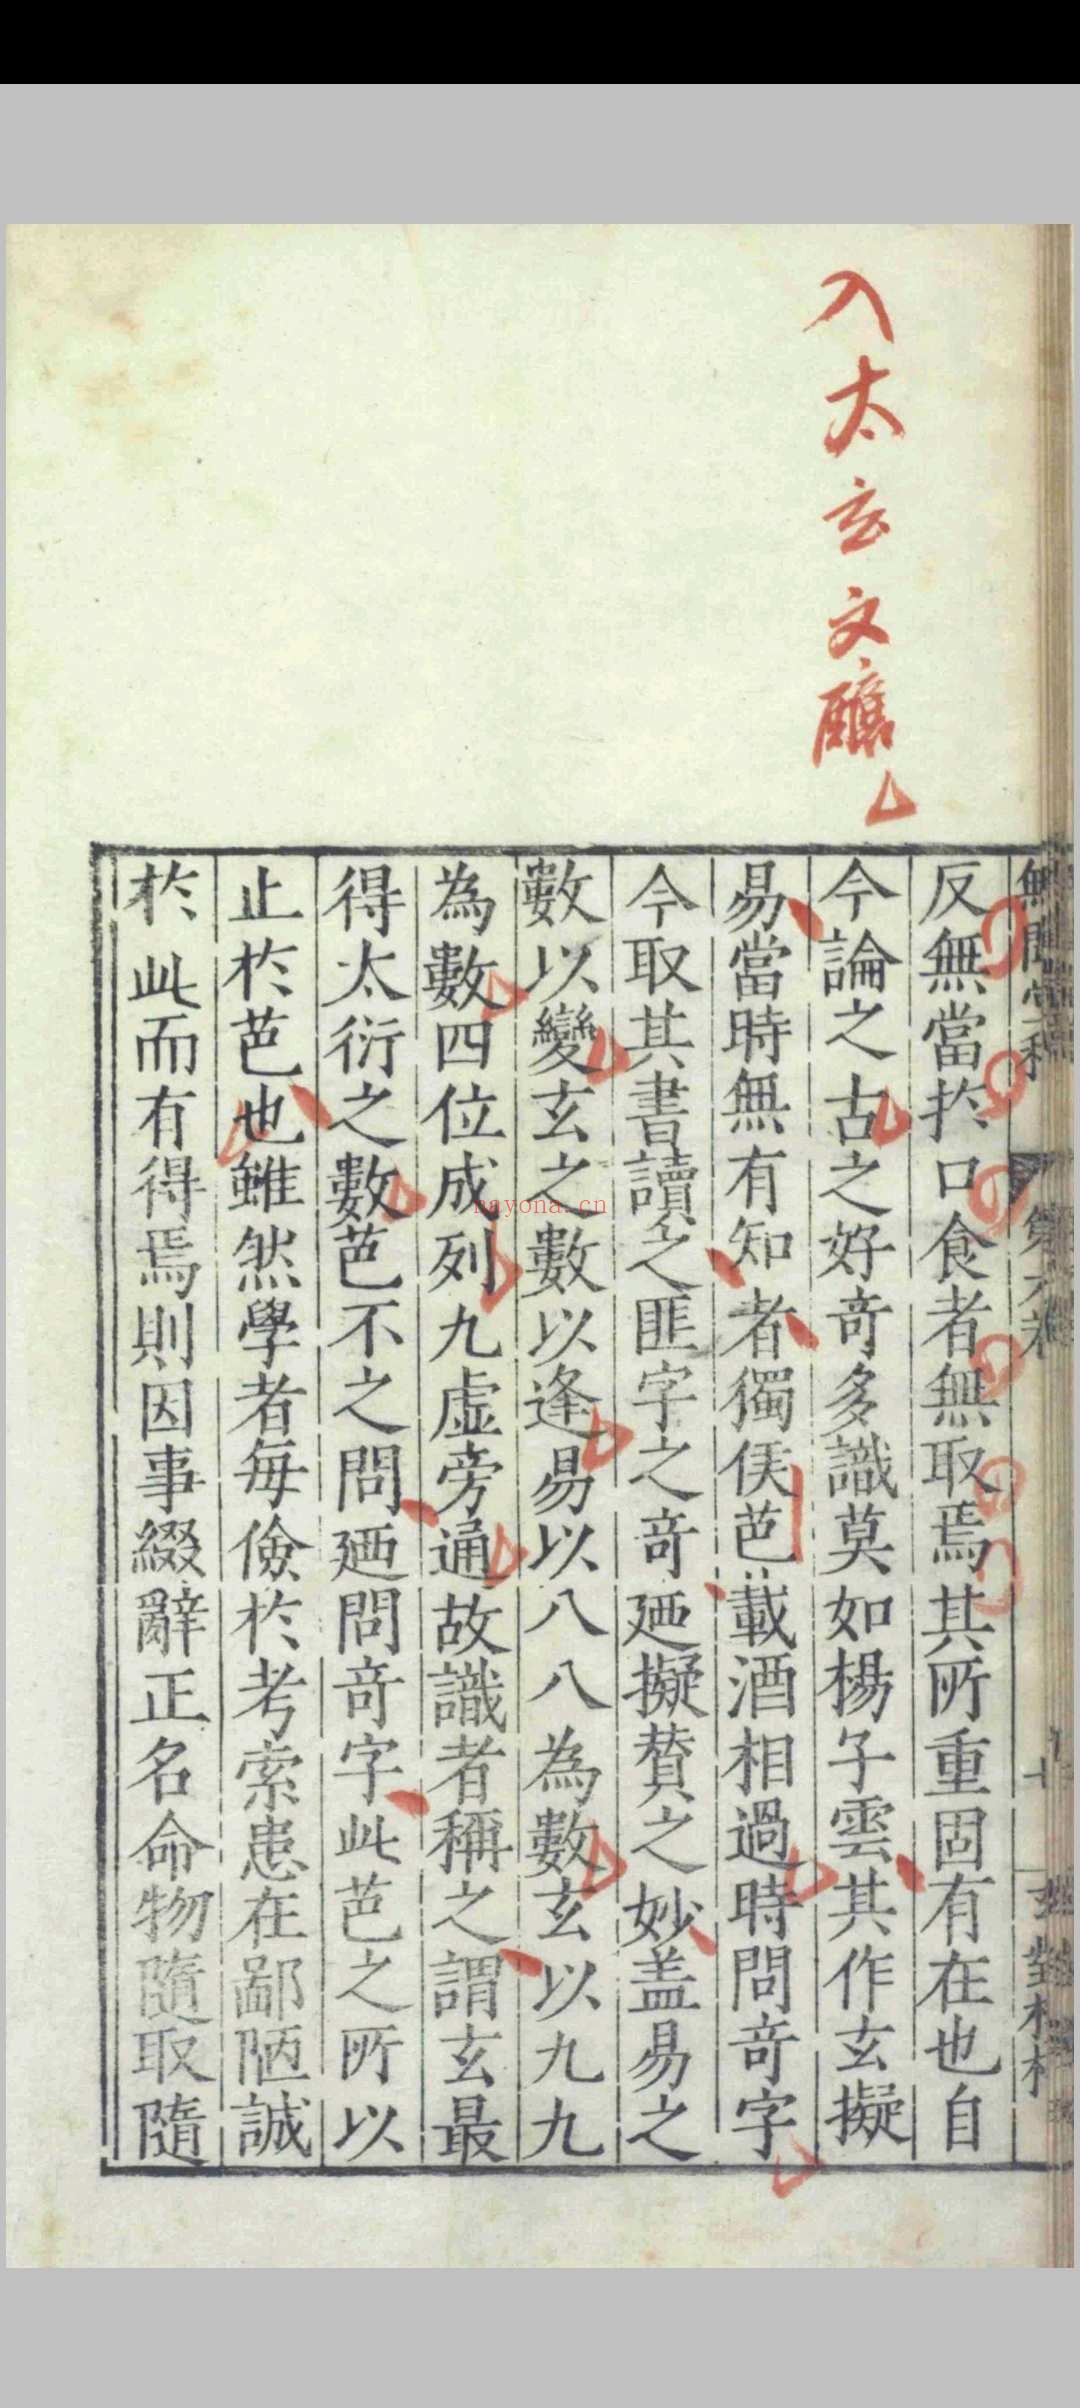 入太玄文釀
反無當扵口食者無取焉其所重固有在也自
今論之古之好竒多識莫如楊子雲其作玄擬
易當時無有知者獨侯芭載酒相過時問竒字
今取其書讀之匪字之竒廼擬賛之妙盖易之
數以變玄之數以逢易以八八為數玄以九九
為數四位成列九虛旁通故識者稱之謂玄最
得太衍之數芭不之問廼問竒字此芭之所以
止扵芭也雖然學者每儉扵考索患在鄙陋誠
扵此而有得焉則因事綴辭正名命物隨取隨
nayona.cn